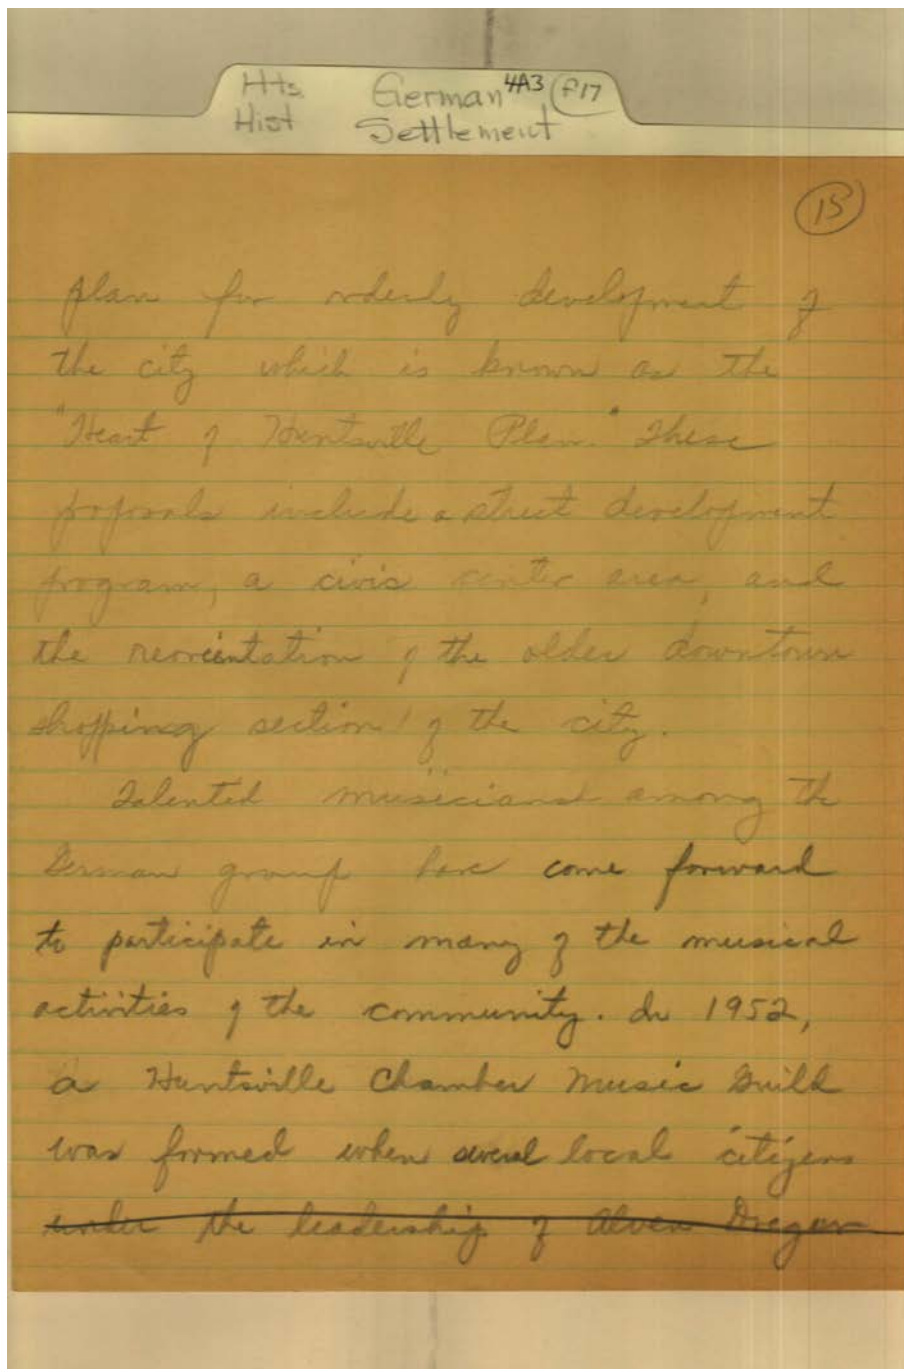 Hts. German 4A3 f17
Hist Settlement
15
plan for orderly development of
the city which is known as the
"Heart of Huntsville Plan." These
proposals include a street development
program, a civic center area, and
the reorientation of the older downtown
shopping section of the city.
Talented musicians among the
German group have come forward
to participate in many of the musical
activities of the community. In 1952,
a Huntsville Chamber Music Guild
was formed when several local citizens
under the leadership of Alven Dreger